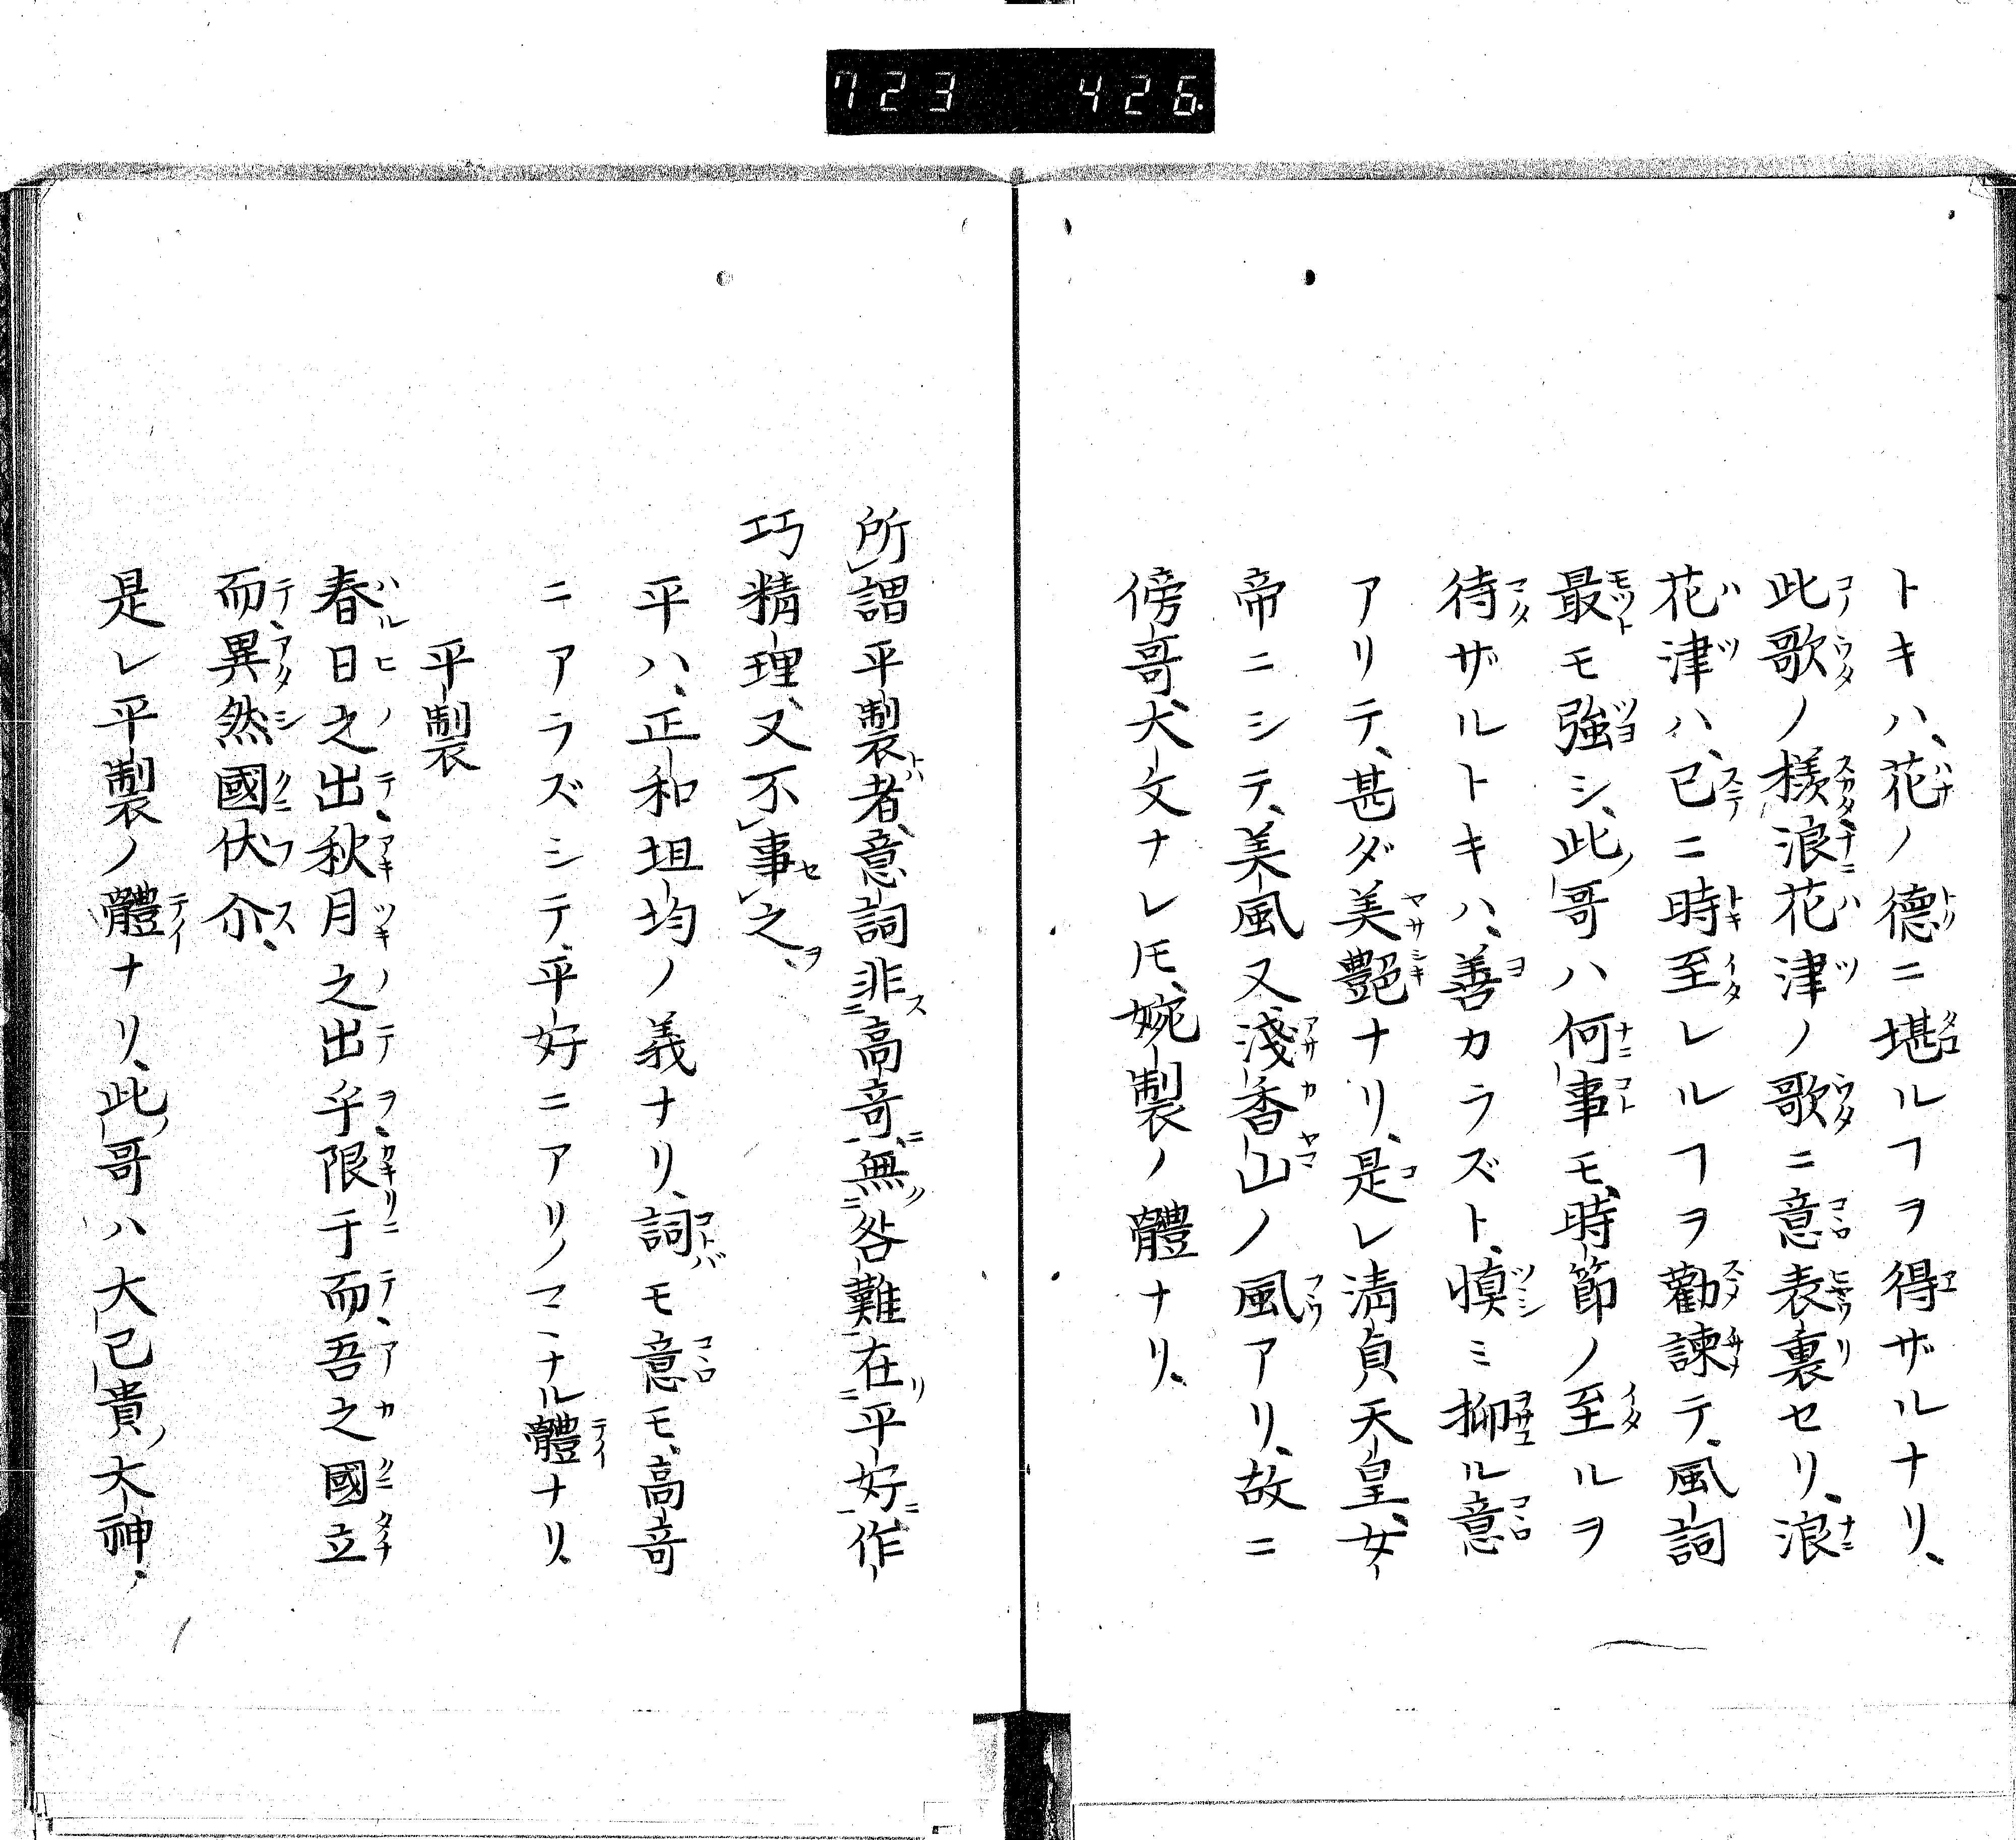 723 426
トキハ、花ノ德ニ堪ルヿヲ得ザルナリ、
此歌ノ樣、浪花津ノ歌ニ意表裏セリ、浪
花津ハ、已ニ時至レルヿヲ勸諫テ、風詞
最モ強シ、此哥ハ何事モ、時節ノ至ルヲ
待ザルトキハ、善カラズト、愼ミ抑ル意
アリテ、甚ダ美艷ナリ、是レ淸貞天皇、女
帝ニシテ、美風又淺香山ノ風アリ、故ニ
傍哥、大文ナレ𪜈、婉製ノ體ナリ、
所謂平製者、意詞非高奇、無咎難在平好作
巧精理、又不事之、
平ハ、正和坦均ノ義ナリ、詞モ意モ、高奇
ニアラズシテ、平好ニアリノマヽナル體ナリ、
平製
春日之出秋月之出乎限于而吾之國立
而異然國伏介、
是レ平製ノ體ナリ、此哥ハ大己貴大神、